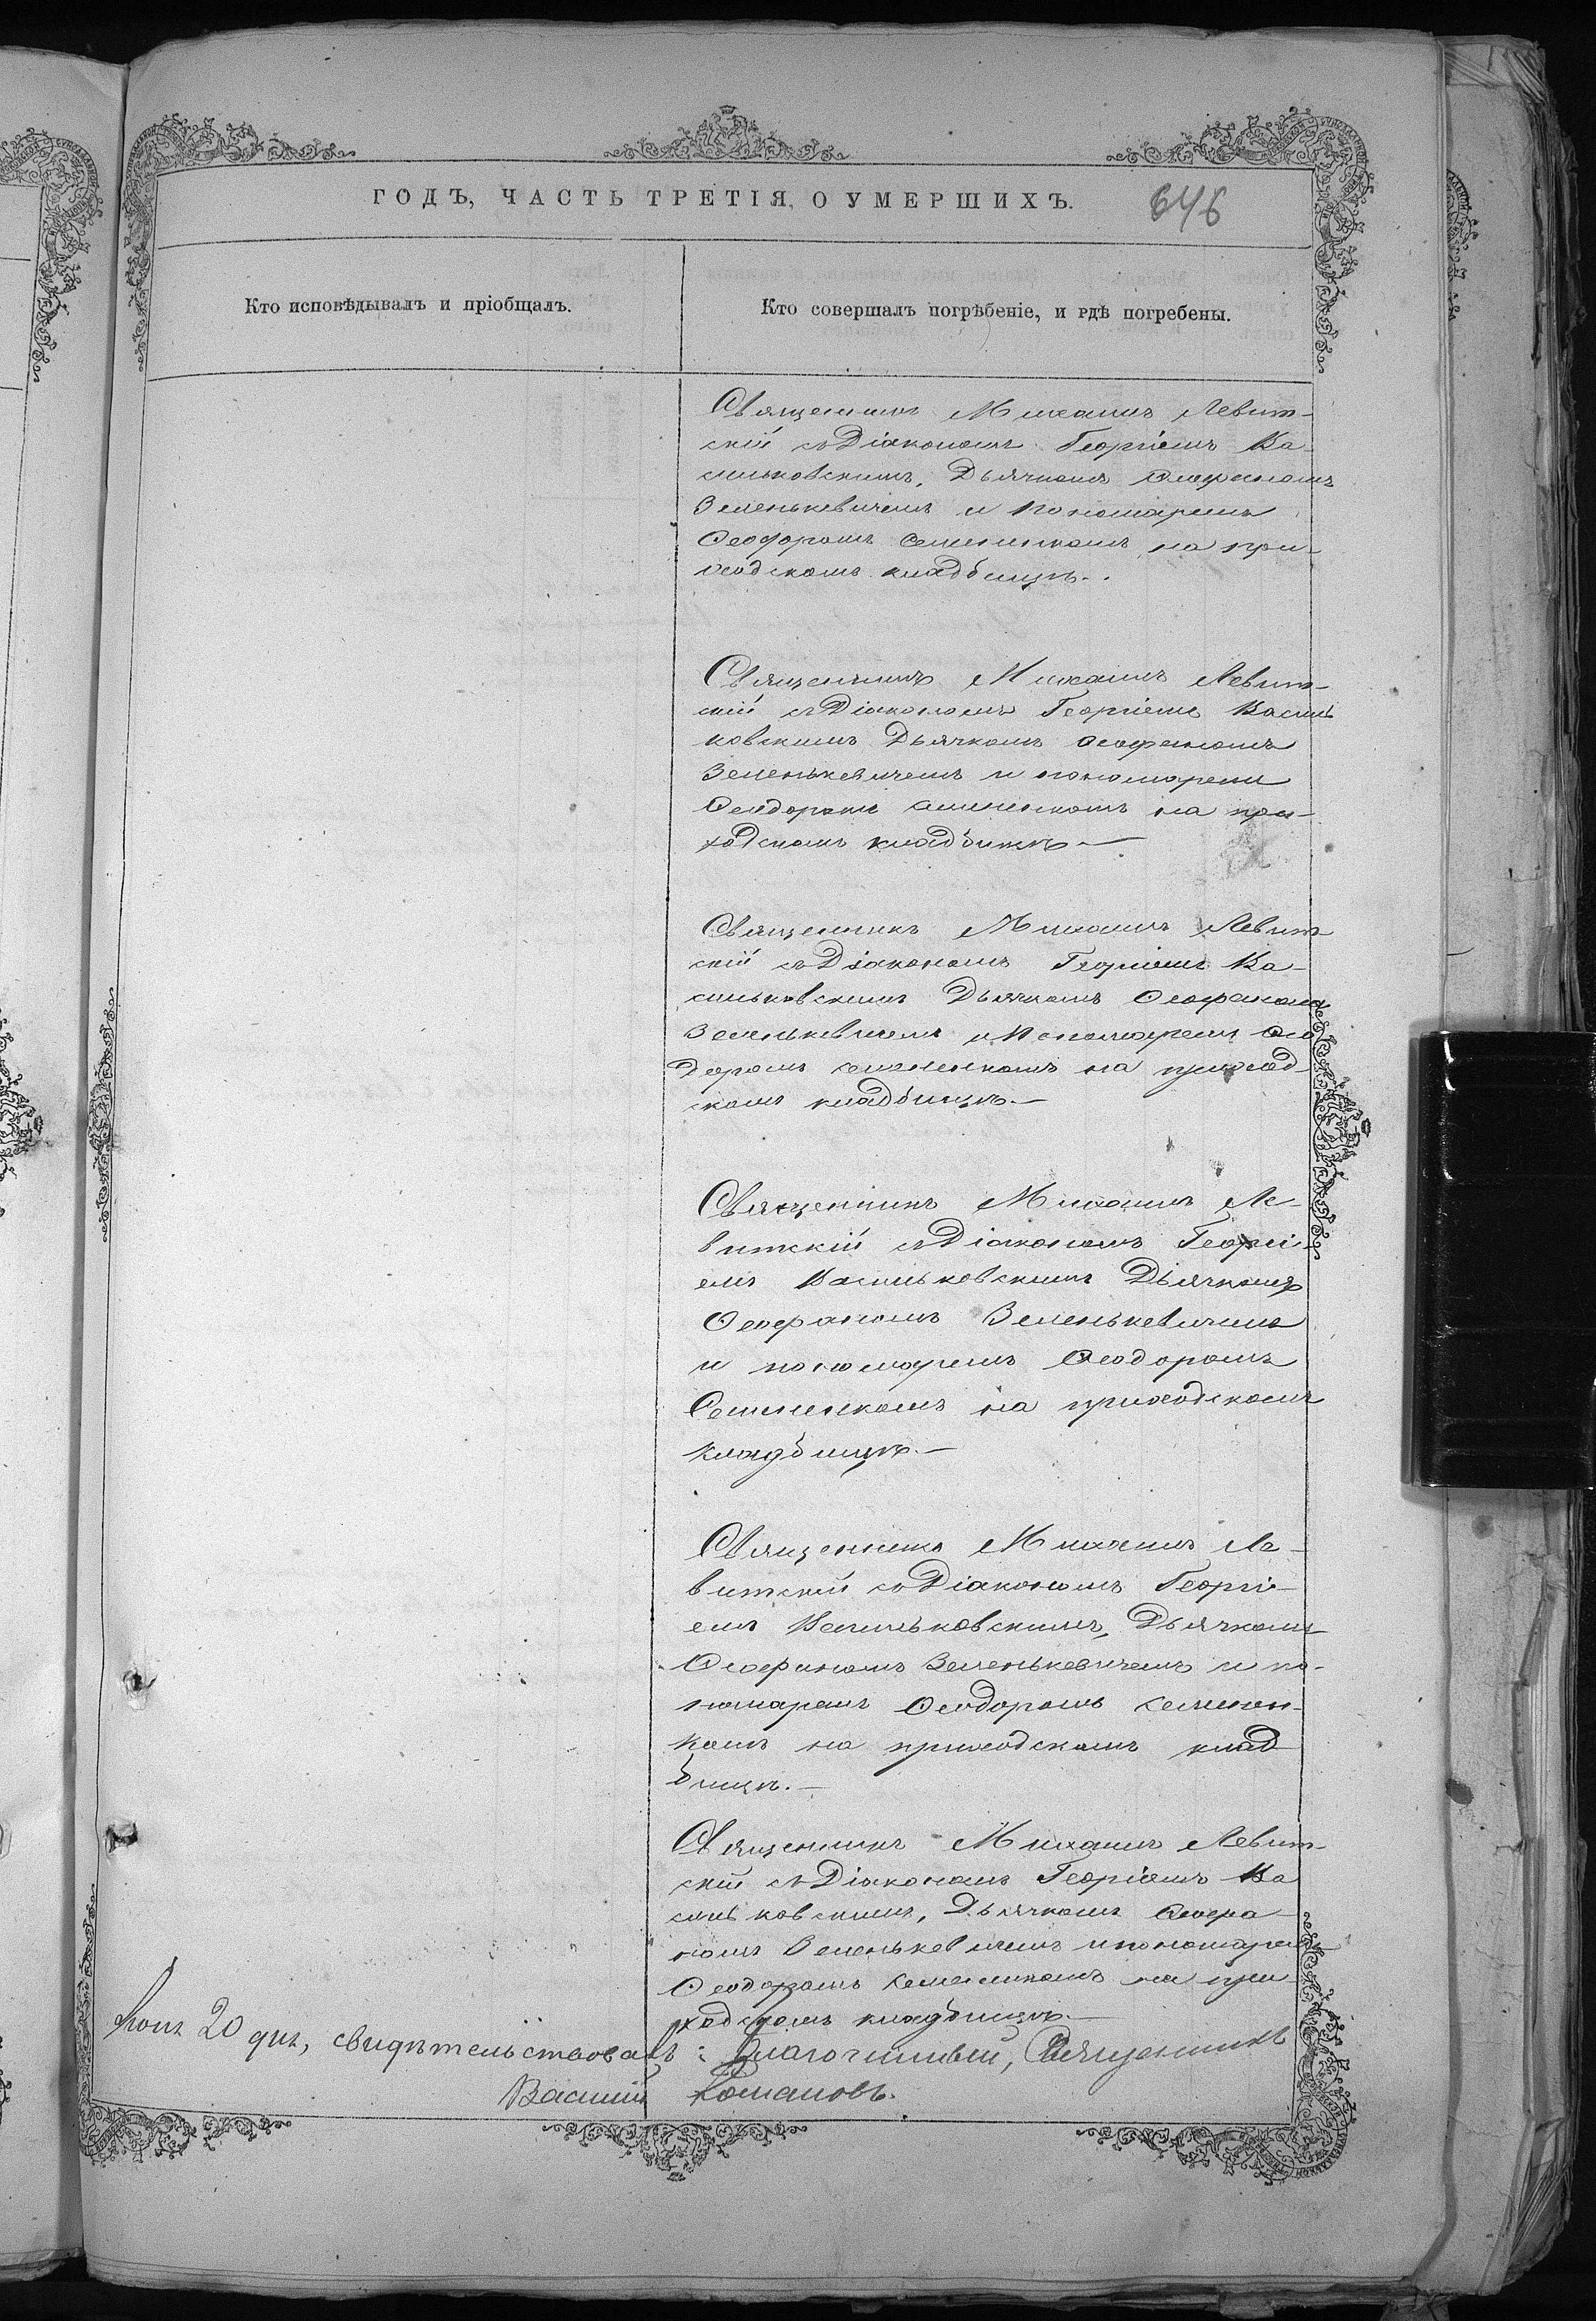 ГОДЪ, ЧАСТЬ ТРЕТІЯ, О УМЕРШИХЪ.
646
Кто исповѣдывалъ и пріобщалъ.
Кто совершалъ погрѣбеніе, и гдѣ погребены.
Священникъ Михаилъ Левит-
скій съ Діакономъ Георгіемъ Ва-
сильковскимъ, Дьячкомъ Ѳеофаномъ
Зеленькевичемъ и Пономаремъ
Ѳеодоромъ Семененкомъ на при-
ходскомъ кладбищѣ.
Священникъ Михаилъ Левит-
скій съ Діакономъ Георгіемъ Василь
ковскимъ Дьячкомъ Ѳеофаномъ
Зеленькевичемъ и пономаремъ
Ѳеодоромъ Семененкомъ на при-
ходскомъ кладбищѣ —
Священникъ Михаилъ Левит-
скій съ Діакономъ Георгіемъ Ва-
сильковскимъ Дьячкомъ Ѳеофаномъ
Зеленькевичемъ и Пономаремъ Ѳео
доромъ Семененкомъ на приход-
скомъ кладбищѣ. —
Священникъ Михаилъ Ле-
витскій съ Діакономъ Георгі-
емъ Васильковскимъ Дьячкомъ
Ѳеофаномъ Зеленькевичемъ
и пономаремъ Ѳеодоромъ
Семененкомъ на приходскомъ
кладбищѣ. —
Священникъ Михаилъ Ле-
витскій съ Діакономъ Георгі-
емъ Васильковскимъ, Дьячкомъ
Ѳеофаномъ Зеленькевичемъ и по-
номаремъ Ѳеодоромъ Семенен-
комъ на приходскомъ клад
бищѣ. —
Священникъ Михаилъ Левит-
скій съ Діакономъ Георгіемъ Ва
сильковскимъ, Дьячкомъ Ѳеофа-
номъ Зеленькевичемъ и пономаремъ
Ѳеодоромъ Семененкомъ на при
ходскомъ кладбищѣ. —
20 дня, свидѣтельствовалъ: Благочинный, Священникъ
Василий Романовъ.